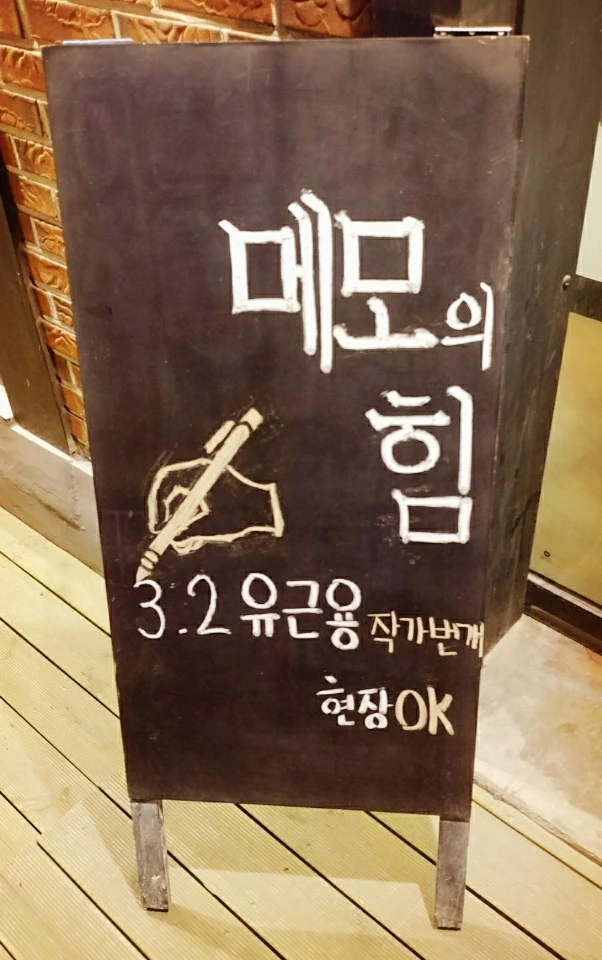 메모의
힘
3.2 유근용 작가번개
현장OK